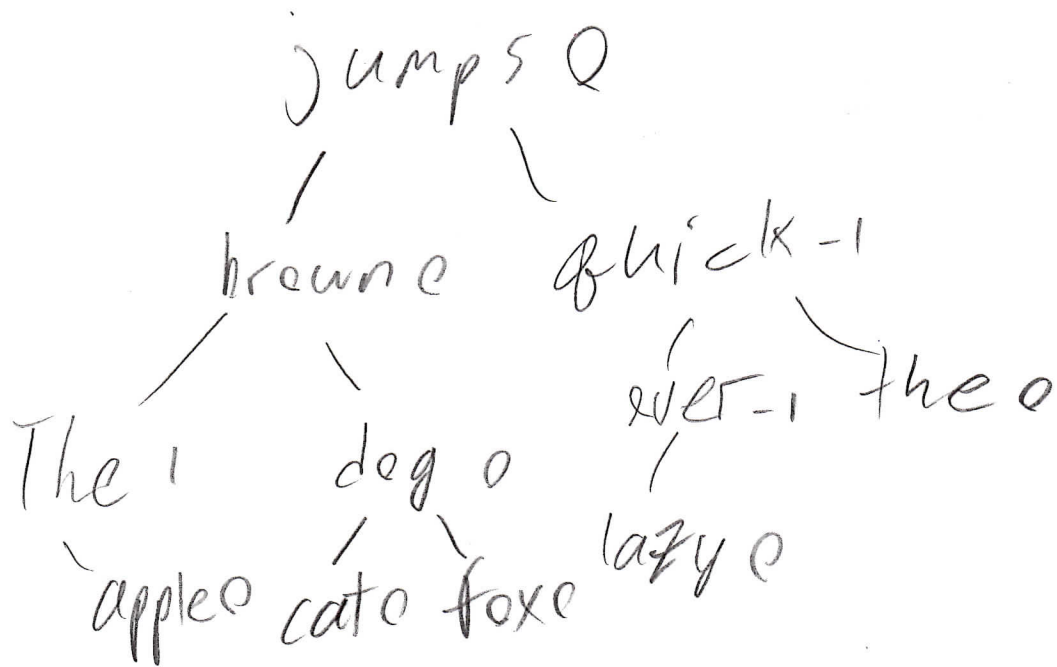 jumps 0
brown 0 quick -1
The 1 dog 0 over -1 the 0
apple 0 cat 0 fox 0 lazy 0